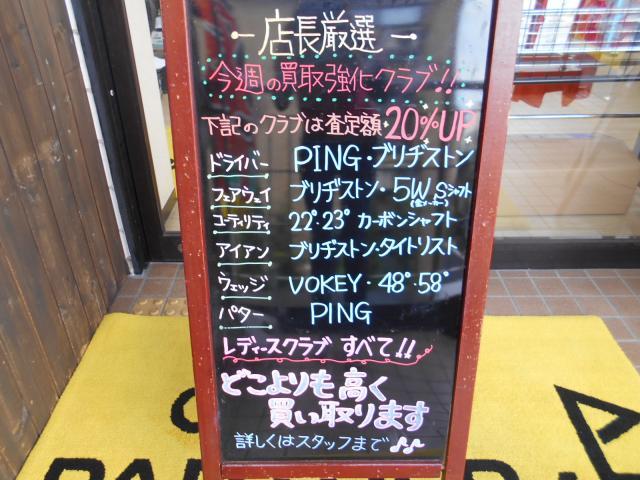 店長厳選
今週の買取強化クラブ!!
下記のクラブは査定額20%UP
ドライバー PING・ブリヂストン
フェアウェイ ブリヂストン・5W Sシャフト
(全メーカー)
ユーティリティ 22°・23° カーボンシャフト
アイアン ブリヂストン・タイトリスト
ウェッジ VOKEY・48°・58°
パター PING
レディースクラブ すべて!!
どこよりも高く
買い取ります
詳しくはスタッフまで♪♪